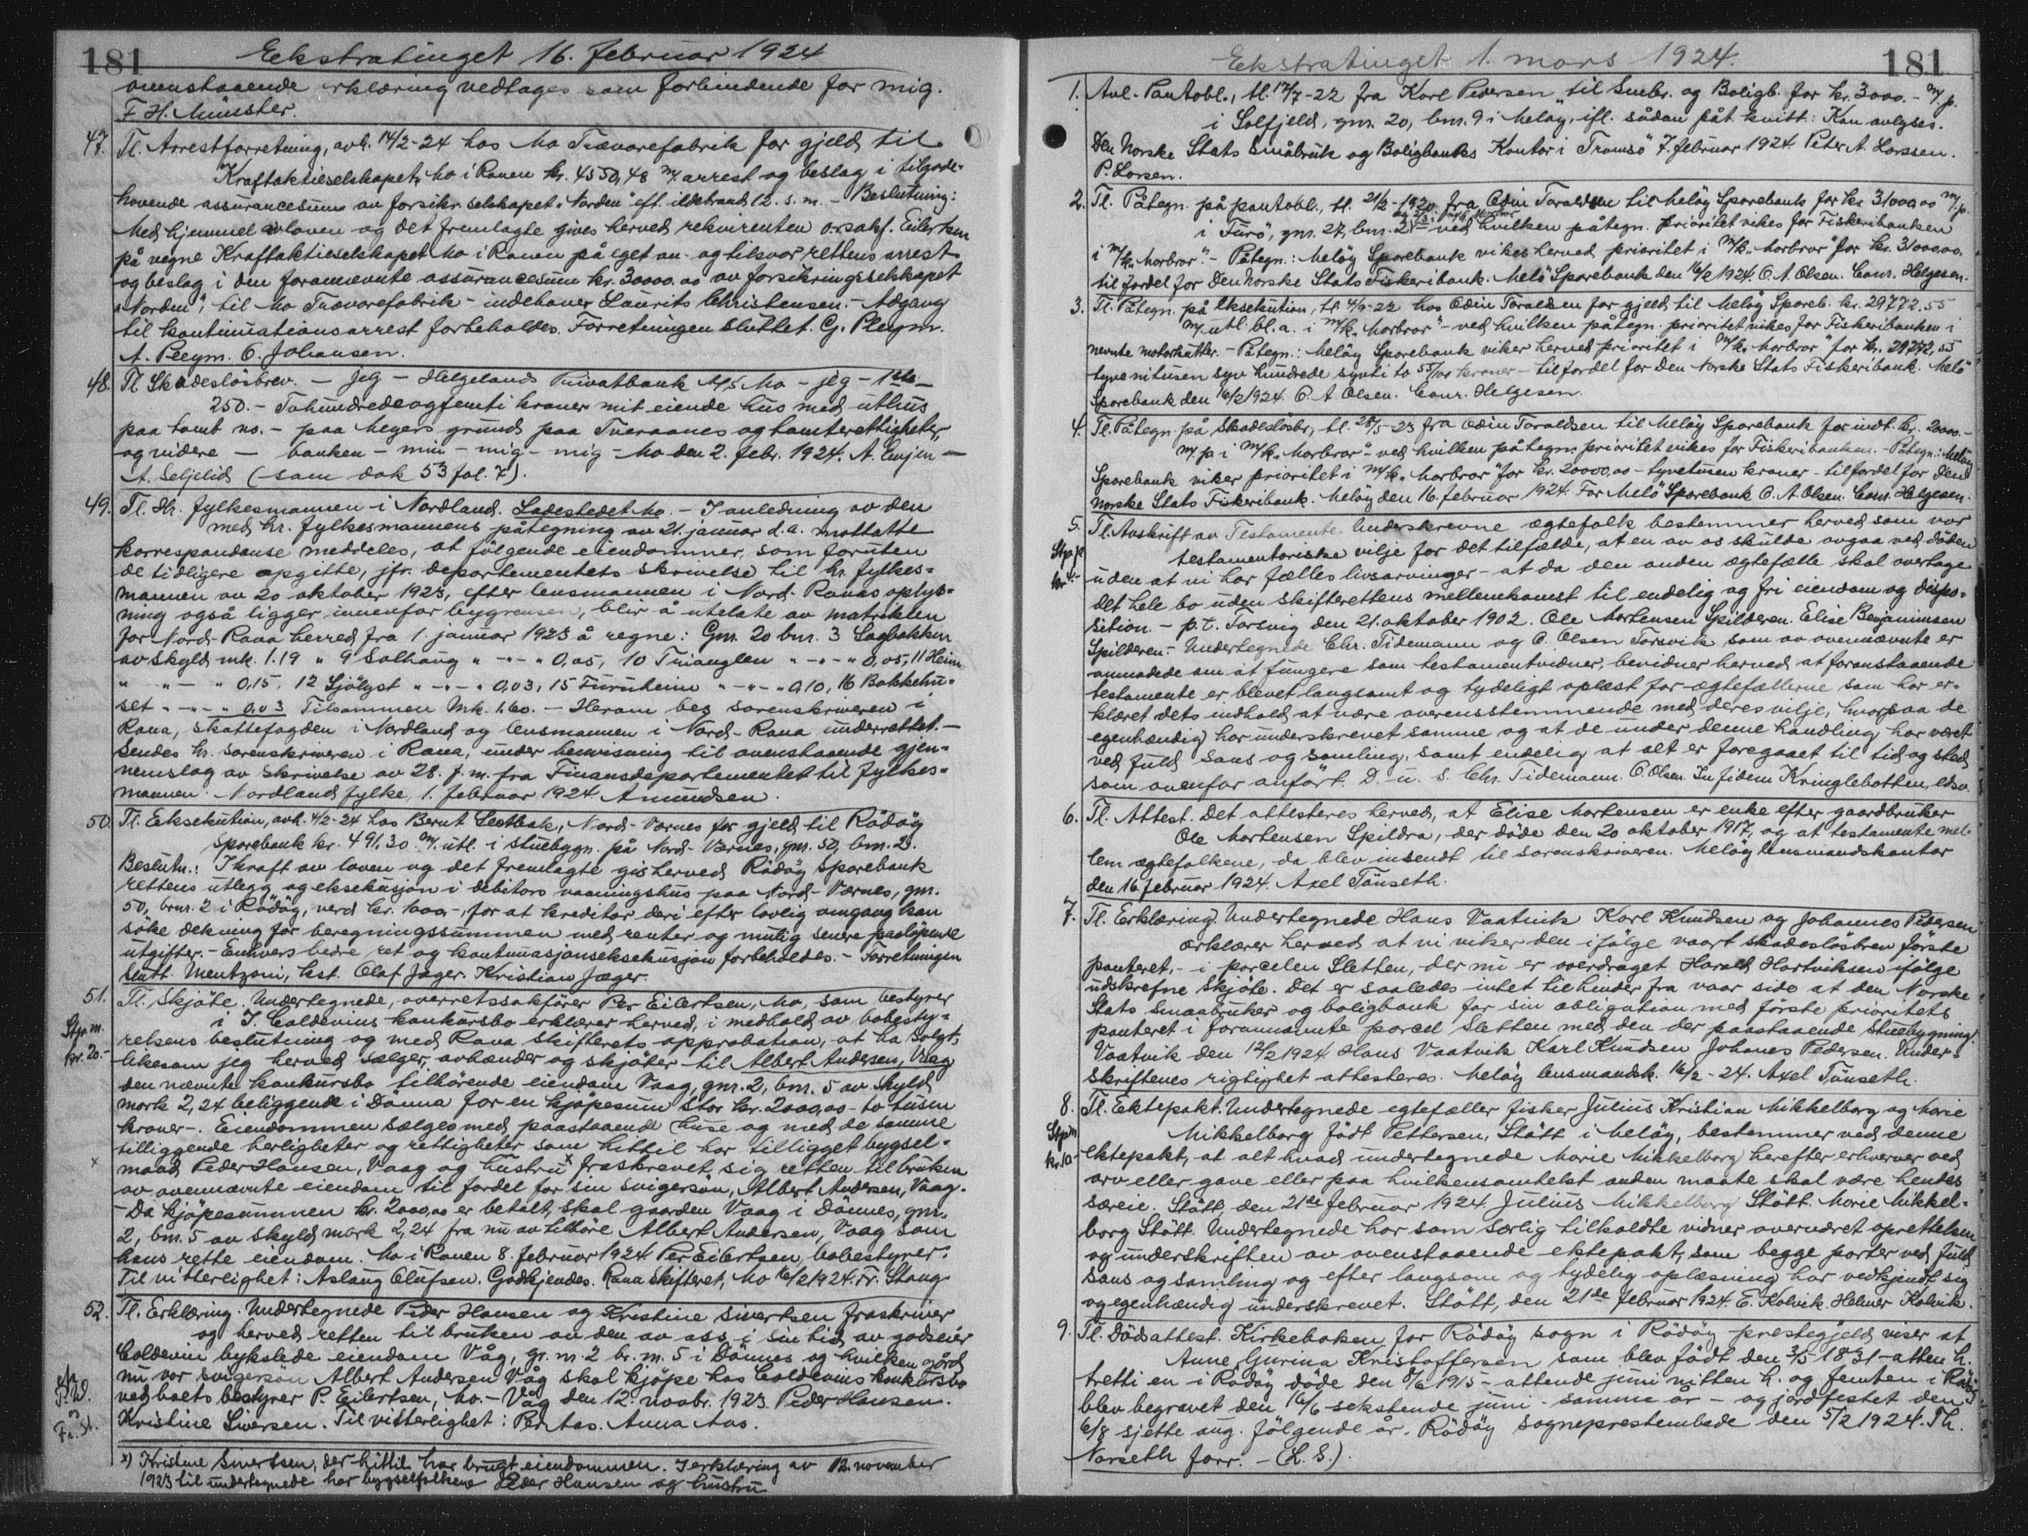 181
Ekstratinget 16. februar 1924
ovenstaaende erklæring vedtages som forbindende for mig.
F. H. Münster.
47. Tl. Arrestforretning, avh. 14/2-24 hos Mo Trævarefabrik for gjeld til
Kraftaktieselskapet, Mo i Ranen kr. 4550,48 m/ arrest og beslag i tilgode-
havende assurancesum av forsikr. selskapet "Norden" eft. ildebrand 12. s. m. - Beslutning:
Med hjemmel i loven og det fremlagte gives herved rekvirenten o.r.sakf. Eilertsen
på vegne Kraftaktieselskapet Mo i Ranen på eget an- og tilsvar rettens arrest
og beslag i den forannævnte assurancesum kr. 30000.00 av forsikringsselskapet
"Norden", til Mo Trævarefabrik - indehaver Laurits Christensen. - Adgang
til kontinuationsarrest forbeholdes. Forretningen sluttet. G. Pleym.
A. Pleym. O. Johansen.
48. Tl. Skadesløsbrev. - Jeg - Helgelands Privatbank A/S Mo - jeg - 1ste -
250.- Tohundredeogfemti kroner mit eiende hus med uthus
paa tomt no. - paa Meyers grund paa Tveraanes og tomterettigheter,
og videre - banken - min - mig - mig - Mo den 2. febr. 1924. A. Enjen -
A. Seljelid (- som dok 53 fol. 7).
49. Tl. Hr. fylkesmannen i Nordland. Ladestedet Mo. - I anledning av den
med hr. fylkesmannens påtegning av 21. januar d.a. mottatte
korrespondanse meddeles, at følgende eiendommer, som foruten
de tidligere opgitte, jfr. departementets skrivelse til hr. fylkes-
mannen av 20 oktober 1923, efter lensmannen i Nord-Ranas oplys-
ning også ligger innenfor bygrensen, blir å utelate av matrikelen
for Nord-Rana herred fra 1. januar 1923 å regne: Gnr. 20 bnr. 3 Sagbakken
av skyld mk. 1.19 " 9 Solhaug " -"- " 0,05, 10 Trianglen " -"- " 0,05, 11 Heim
" -"- " 0,15, 12 Sjölyst " -"- " 0,03, 15 Furuheim " -"- " 0,10, 16 Bakkehu-
set " -"- " 0,03 Tilsammen Mk. 1.60. - Herom bes sorenskriveren i
Rana, skattefogden i Nordland og lensmannen i Nord-Rana underrettet. -
Sendes hr. sorenskriveren i Rana, under henvisning til ovenstaaende gjen-
nemslag av skrivelse av 28. f. m. fra Finansdepartementet til fylkes-
mannen. Nordland fylke, 1. februar 1924 Amundsen.
50. Tl. Eksekution, avh. 4/2-24 hos Bernt Slotbak, Nord-Værnes for gjeld til Rödöy
Sparebank kr. 491,30 m/ utl. i stuebygn. på Nord-Værnes, gnr. 50, bnr. 2.
Beslutn.: I kraft av loven og det fremlagte gis herved Rödöy Sparebank
rettens utlegg og eksekusjon i debitors vaaningshus paa Nord-Værnes, gnr.
50, bnr. 2 i Rödöy, verd kr. 1000.-, for at kreditor deri efter lovlig omgang kan
söke dekning for beregningssummen med renter og mulig senere paalöpende
utgifter. - Enhvers bedre ret og kontinuasjonseksekusjon forbeholdes. - Forretningen
slutt. Mentzoni, hst. Olaf Jæger. Kristian Jæger.
51. Tl. Skjöte. Undertegnede, overretssakförer Per Eilertsen, Mo, som bestyrer
Stp. m.
kr. 20.-
i I. Coldevins konkursbo erklærer herved, i medhold av bobesty-
relsens beslutning og med Rana skifterets approbation, at ha solgt,
likesom jeg herved sælger, avhænder og skjöter til Albert Andersen, Vaag
den nævnte konkursbo tilhörende eiendom Vaag, gnr. 2, bnr. 5 av skyld
mark 2,24 beliggende i Dönna for en kjöpesum stor kr. 2000,00 - to tusen
kroner -. Eiendommen sælges med paastaaende huse og med de samme
tilliggende herligheter og rettigheter som hittil har tilligget bygsel-
x mand Peder Hansen, Vaag og hustru x fraskrevet sig retten til bruken
av ovennævnte eiendom til fordel for sin svigersøn, Albert Andersen, Vaag.
- Da kjöpesummen kr. 2000,00 er betalt, skal gaarden Vaag i Dönnes, gnr.
2, bnr. 5 av skyld mark 2,24 fra nu av tilhöre Albert Andersen, Vaag som
hans rette eiendom. Mo i Ranen 8. februar 1924 Per Eilertsen, bobestyrer.
Til vitterlighet: Aslaug Olufsen. Godkjendes. Rana Skifteret, Mo 16/2 1924. Fr. Stang.
52. Tl. Erklæring. Undertegnede Peder Hansen og Kristine Sivertsen fraskriver
og herved retten til bruken av den av oss i sin tid av godseier
Coldevin bykslede eiendom Våg, gr. nr 2 br. nr. 5 i Dönnes og hvilken gård
nu vor svigersøn Albert Andersen Våg skal kjöpe hos Coldevins konkursbo
ved boets bestyrer P. Eilertsen, Mo. - Våg den 12. novbr. 1923. Peder Hansen.
Kristine Sivertsen. Til vitterlighet: Per Aas. Anna Aas.
x) Kristine Sivertsen, der hittil har brugt eiendommen. I erklæring av 12. november
1923 til undertegnede har bygselfolkene Peder Hansen og hustru
181
Ekstratinget 1. mars 1924.
1. Avl. Pantobl., tl. 17/7-22 fra Karl Pedersen til Småbr. og Boligb. for kr. 3000.- m/ p.
i Solfjeld, gnr. 20, bnr. 9 i Meløy, ifl. sådan påt. kvitt: Kan avlyses.
Den Norske Stats Småbruk og Boligbanks Kontor i Tromsö 7. februar 1924. Peter A. Larssen.
P. Larsen.
2. Tl. Påtegn. på pantobl., tl. 21/2-1920 fra Odin Toraldsen til Meløy Sparebank for kr 31000.00 m/ p.
i Furö, gnr. 27, bnr. 2 - ved hvilken påtegn. prioritet vikes for Fiskeribanken
i m/k. "Morbror" - Påtegn.: Meløy Sparebank vikes herved prioritet i m/k. "Morbror" for kr. 31000.00.
til fordel for Den Norske Stats Fiskeribank. Melö Sparebank den 16/2 1924 O. A. Olsen. Conr. Helgesen.
3. Tl. Påtegn. på Eksekution, tl. 4/9-22 hos Odin Toraldsen for gjeld til Meløy Spareb. kr. 29772.55
m/ utl. bl. a. i m/k. "Morbror" - ved hvilken påtegn. prioritet vikes for Fiskeribanken i
nevnte motorkutter. - Påtegn.: Meløy Sparebank viker herved prioritet i m/k. "Morbror" for kr. 29772,55
tyvenitusen syv hundrede sytti to 55/100 kroner - til fordel for den Norske Stats Fiskeribank. Melö
Sparebank den 16/2 1924. O. A Olsen. Conr. Helgesen.
4. Tl. Påtegn. på skadeslösbr., tl. 28/5-23 fra Odin Toraldsen til Meløy Sparebank for indt. kr. 20000.-
m/ p i m/k. "Morbror" - ved hvilken påtegn. prioritet vikes for Fiskeribanken. - Påtegn.: Meløy
Sparebank viker prioritet i m/k. "Morbror" for kr. 20000,00 - tyvetusen kroner - til fordel for Den
Norske Stats Fiskeribank. Meløy den 16. februar 1924. For Melö Sparebank O. A. Olsen. Conr. Helgesen.
5. Tl. Avskrift av Testamente. Underskrevne ægtefolk bestemmer herved som vor
Stp. fr.
kr. 4.-
testamentariske vilje for det tilfælde, at en av os skulde avgaa ved døden
uden at vi har fælles livsarvinger - at da den anden ægtefælle skal overtage
det hele bo uden skifterettens mellemkomst til endelig og fri eiendom og dispo-
sition. - p. t. Torsvig den 21. oktober 1902. Ole Mortensen Spilderen. Elise Benjaminsen
Spilderen. - Undertegnede Chr. Tidemann og O. Olsen Torsvik som av ovennævnte er
anmodede om at fungere som testamentvidner, bevidner herved at foranstaaende
testamente er blevet langsomt og tydeligt oplæst for ægtefællerne som har er-
klæret dets indhold at være overensstemmende med deres vilje, hvorpaa de
egenhændig har underskrevet samme og at de under denne handling har været
ved fuld sans og samling, samt endelig at alt er foregaaet til tid og sted
som ovenfor anfört. D. u. s. Chr. Tidemann. O Olsen. In fidem Kringlebotten, edsv.
6. Tl. Attest. Det attesteres herved, at Elise Mortensen er enke efter gaardbruker
Ole Mortensen Spildra, der döde den 20 oktober 1917, og at testamente mel-
lem ægtefolkene, da blev insendt til sorenskriveren. Meløy lensmandskontor
den 16 februar 1924. Axel Tönseth.
7. Tl. Erklæring. Undertegnede Hans Vaatvik Karl Knudsen og Johannes Pedersen
erklærer herved at vi viker den ifölge vaart skadeslösbrev förste
panteret, - i parcelen Sletten, der nu er overdraget Harald Hartviksen ifölge
udskrefne skjöte. Det er saaledes intet til hinder fra vaar side at den Norske
Stats Smaabruker og boligbank for sin obligation med förste prioritets
panteret i forannævnte parcel Sletten med den der paastaaende stuebygning.
Vaatvik den 12/2 1924 Hans Vaatvik Karl Knudsen Johanes Pedersen. Under-
skriftenes rigtighet attesteres. Meløy lensmandsk. 16/2-24. Axel Tönseth.
8. Tl. Ektepakt. Undertegnede egtefæller fisker Julius Kristian Mikkelborg og Marie
Stp. m
kr. 10.-
Mikkelborg födt Pettersen, Stött i Meløy, bestemmer ved denne
ektepakt, at alt hvad undertegnede Marie Mikkelborg herefter erhverver ved
arv eller gave eller paa hvilkensomhelst anden maate skal være hendes
særeie. Stött, den 21de februar 1924. Julius Mikkelborg Stött. Marie Mikkel-
borg Stött. Undertegnede har som særlig tilkaldte vidner overværet oprettelsen
og underskriften av ovenstaaende ektepakt, som begge parter ved fuld
sans og samling og efter langsom og tydelig oplæsning har vedkjendt sig
og egenhændig underskrevet. Stött, den 21de februar 1924. E. Kalvik. Helmer Kalvik.
9. Tl. Dödsattest. Kirkeboken for Rödöy sogn i Rödöy prestegjeld viser at
Anne Gurina Kristoffersen som blev födt den 3/5 1831 - atten h.
tretti en i Rödöy döde den 8/6 1915 - attende juni nitten h. og femten i Rödöy
blev begravet den 16/6 - sekstende juni - samme år - og jordfestet den
6/8 sjette aug. fölgende år. Rödöy sogneprestembede den 5/2 1924. Th.
Norseth forr. - (L. S.).